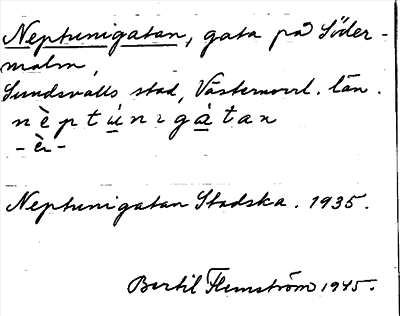 Neptunigatan, gata på Söder-
malm,
Sundsvalls stad, Västernorrl. län.
nèptúnıgàtan
-èı-
Neptunigatan Stadska. 1935.
Bertil Flemström 1945.